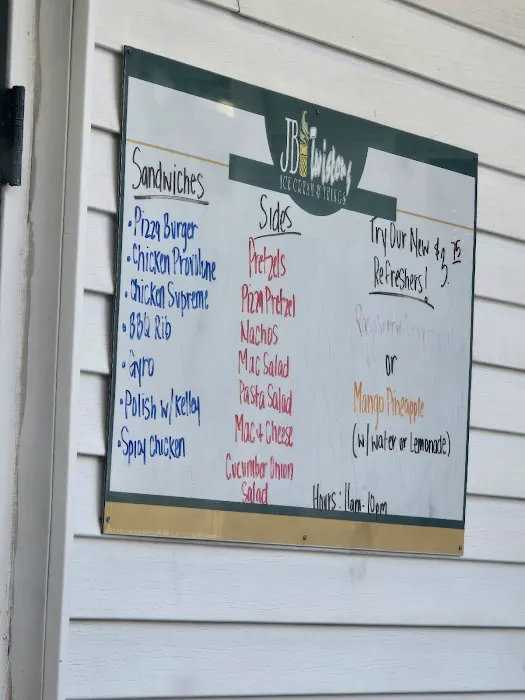 JB Twistons
ICE CREAM & THINGS
Sandwiches
• Pizza Burger
• Chicken Provolone
• Chicken Supreme
• BBQ Rib
• Gyro
• Polish w/
• Spicy Chicken
Sides
Pretzels
Pizza Pretzel
Nachos
Mac Salad
Pasta Salad
Mac & Cheese
Cucumber Onion
Salad
Try Our New $2.75
Refreshers!
or
Mango Pineapple
(w/ Water or Lemonade)
Hours: 11am-10pm